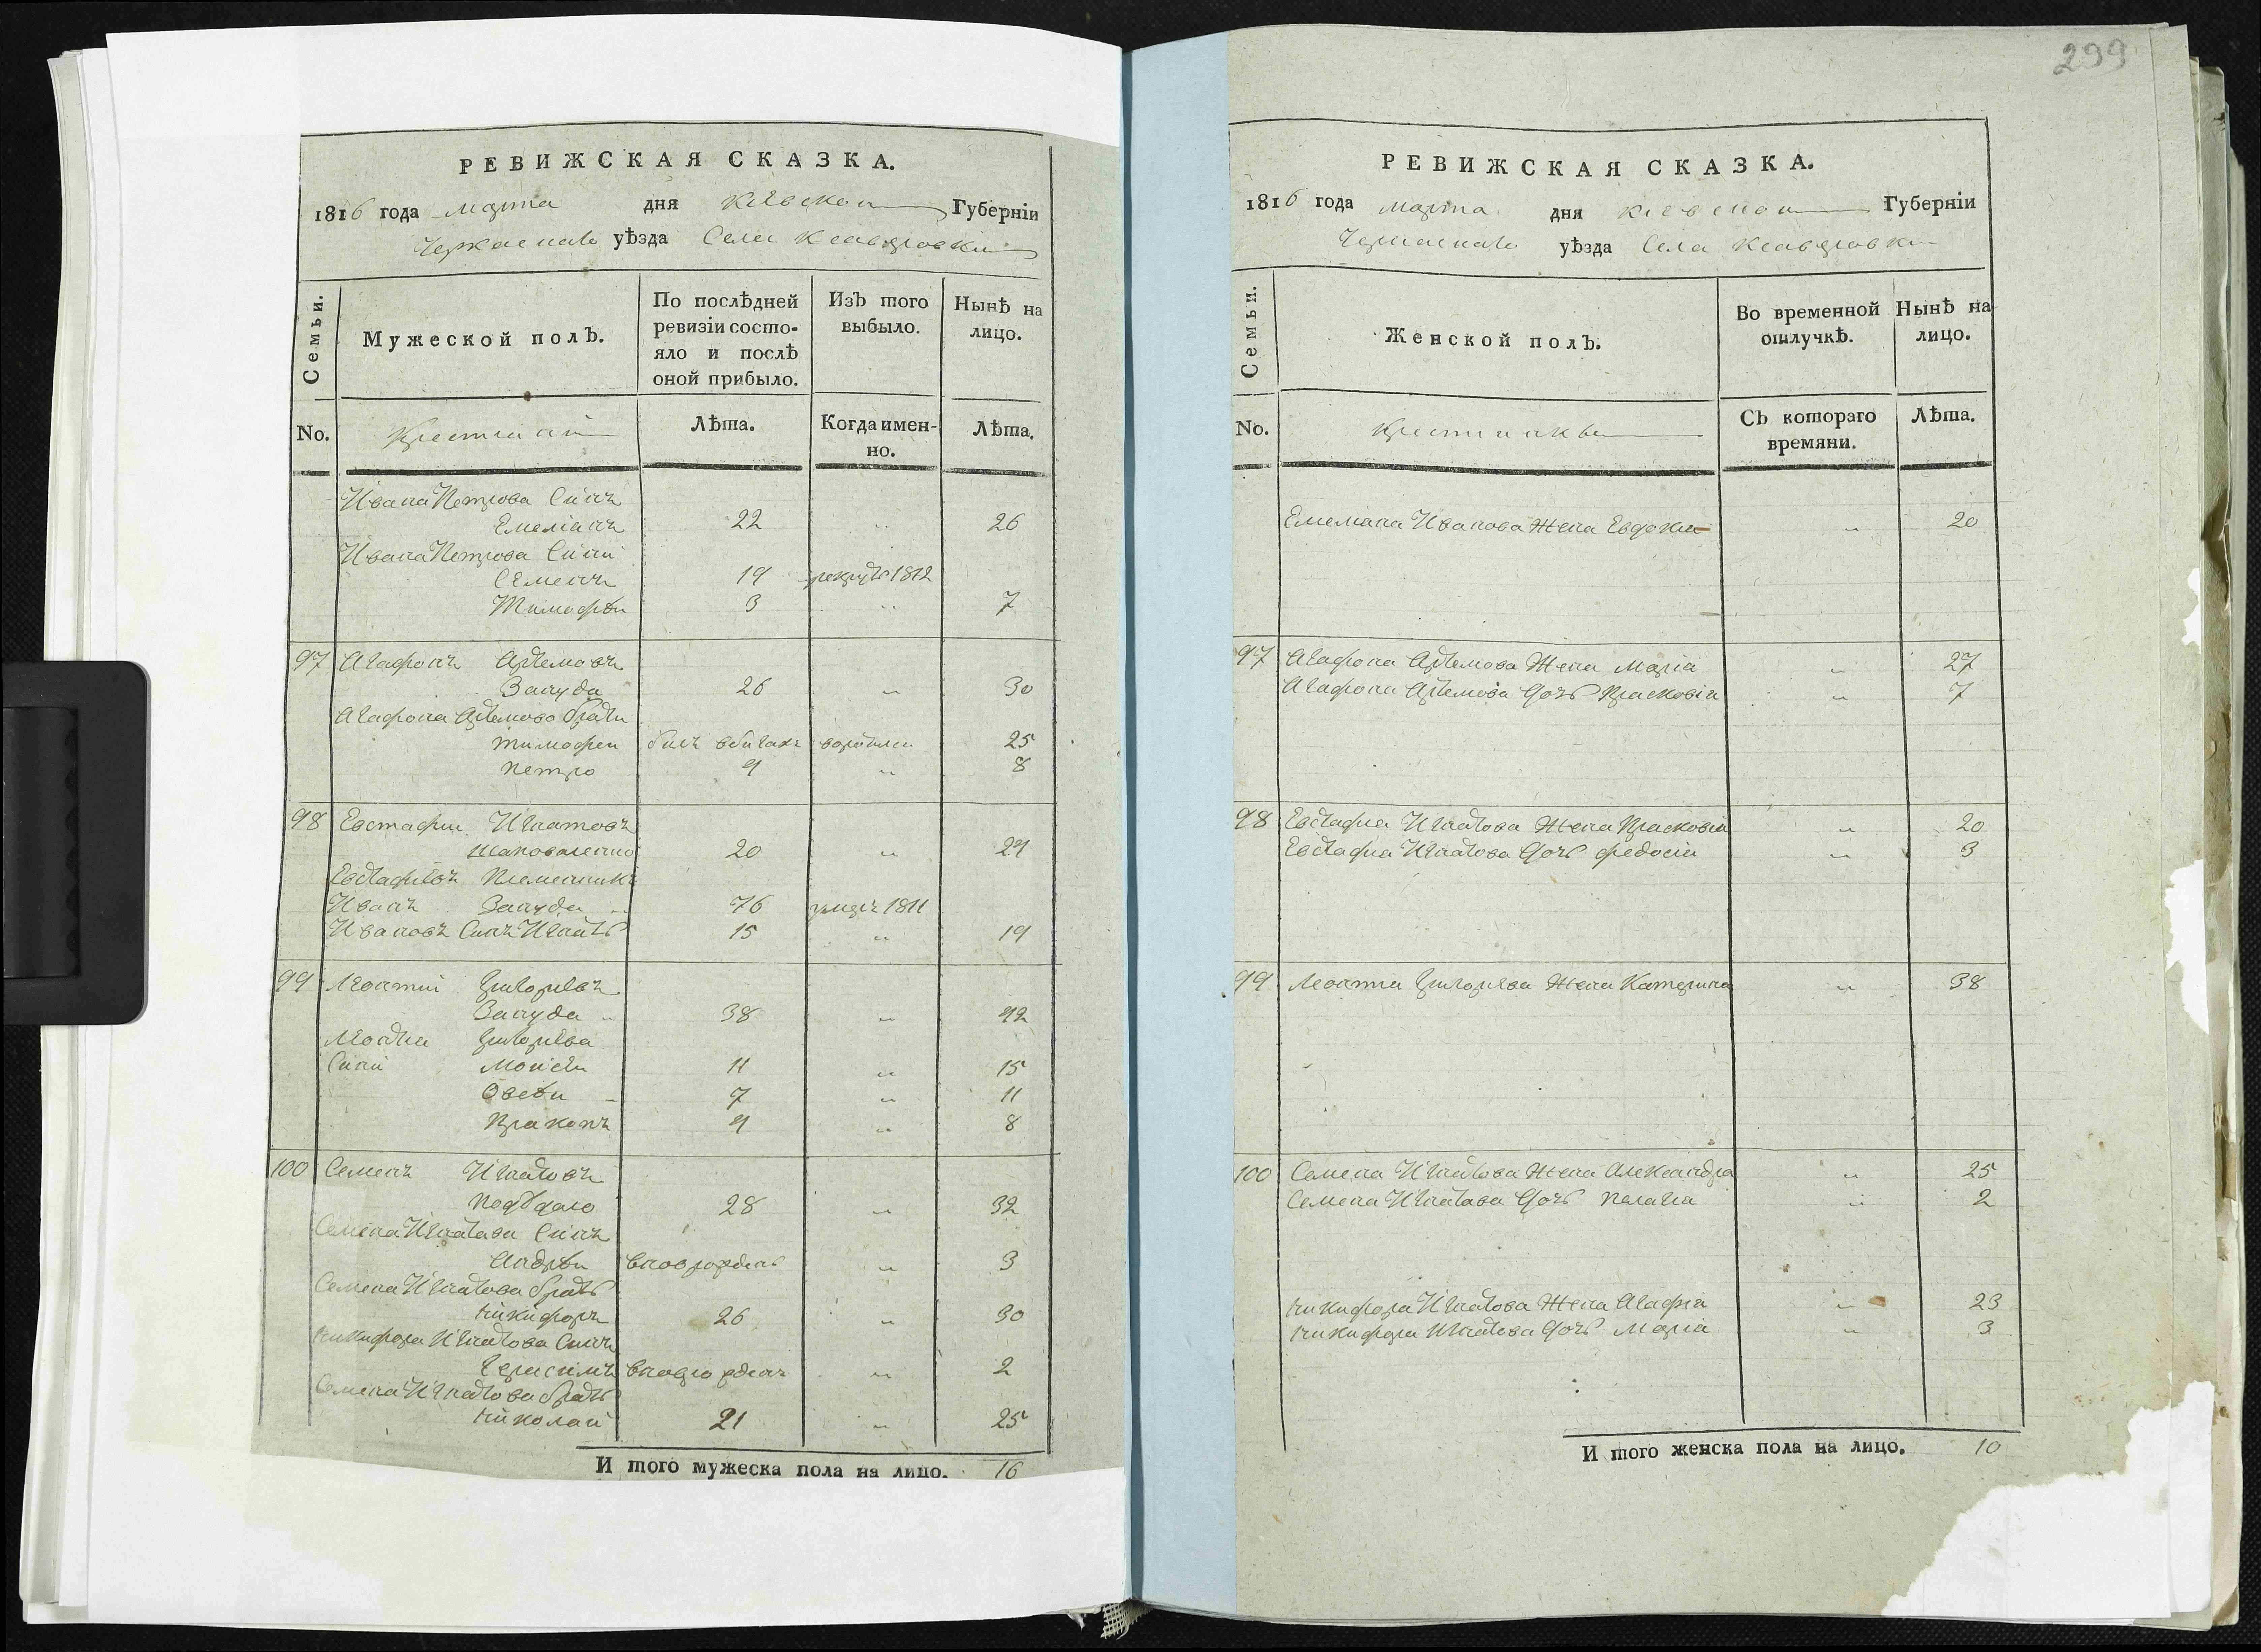 299
РЕВИЖСКАЯ СКАЗКА.
1816 года марта дня Кіевской Губерніи
Черкаскаго уѣзда Села
Семьи.
Мужеской полЪ.
По послѣдней ревизіи состо-
яло и послѣ
оной прибыло.
ИзЪ того выбыло.
Нынѣ на лицо.
No.
Крестьяни
Лѣта.
Когда имен-
но.
Лѣта.
Ивана Петрова Синъ
Емеліанъ 22 „ 26
Ивана Петрова Сини
Семенъ 19 рекрутъ 1812
Тимофѣй 3 „ 7
97 Агафонъ Артемовъ
Зануда 26 „ 30
Агафона Артемова братъи
Тимофей билъ вбигахъ 25
Петро 4 „ 8
98 Евстафий Игнатовъ
Шаповаленко 20 „ 24
Евстафіевъ Племенникъ
Иванъ Зануда „ 76 умеръ 1811
Ивановъ Синъ Игнатъ 15 „ 19
99 Леонтий Григоріевъ
Зануда „ 38 „ 42
Леонтия Григоріева
Сини Моисей 11 „ 15
Овсѣй 7 „ 11
Пракопъ 4 „ 8
100 Семенъ Игнатовъ
28 „ 32
Семена Игнатова Синъ
Андрѣй вновъ рожденъ „ 3
Семена Игнатова братъ
Никифоръ 26 „ 30
Никифора Игнатова Синъ
Герасимъ вновъ рожденъ „ 2
Семена Игнатова братъ
Николай 21 „ 25
И того мужеска пола на лицо. 16
РЕВИЖСКАЯ СКАЗКА.
1816 года марта дня Кіевской Губерніи
Черкаскаго уѣзда Села
Семьи.
Женской полЪ.
Во временной отлучкѣ.
Нынѣ на лицо.
No.
Крестьянкы
СЪ котораго времяни.
Лѣта.
Емелиана Иванова Жена Евдокия „ 20
97 Агафона Артемова Жена Маріа „ 27
Агафона Артемова Дочь Прасковіа „ 7
98 Евстафиа Игнатова Жена Прасковіа „ 20
Евстафиа Игнатова Дочь Федосіи „ 3
99 Леонтиа Григоріева Жена Катерина „ 38
100 Семена Игнатова Жена Александра „ 25
Семена Игнатова Дочь Палагіа „ 2
Никифора Игнатова Жена Агафіа „ 23
Никифора Игнатова Дочь Маріа „ 3
И того женска пола на лицо. 10